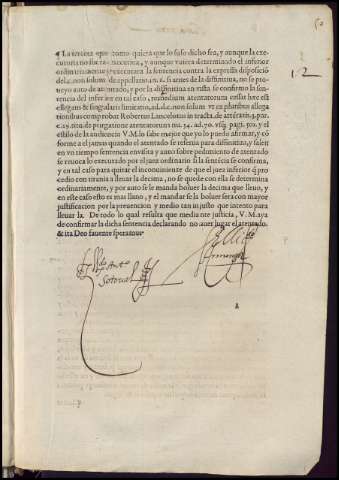 ¶La tercera que como quiera que lo suso dicho sea, y aunque la exe-
cutoria no fuera notoria, y aunque vuiera determinado el inferior
ordinariamente, y executara la sentencia contra la expressa disposició
del.c. non solum de appellatio.in.6. si antes de la diffinitiua, no se pro-
ueyo auto de atentado, y por la diffinitiua en vista se confirmo la sen-
tencia del inferior en tal caso, remedium atentatorum cessat hæc est
elegans & singularis limitatio, ad.d.c. non solum vt ex pluribus allega-
tionibus comprobat Robertus Lancelotus in tracta. de atētatis.3.par.
c.24.titu. de purgatione atentatorum nu.54. ad.70. vsq; pagi.502. y el
estilo de la audiencia V.M. lo sabe mejor que yo lo puedo afirmar, y cō
forme a el jamas quando el atentado se reserua para diffinitiua, y salen
en vn tiempo sentencia en vista y auto sobre pedimento de atentado
se reuoca lo executado por el juez ordinario si la sentēcia se confirma,
y en tal caso para quitar el inconuiniente de que el juez inferior q̄ pro
cedio con tirania a lleuar la decima, no se quede con ella se determina
ordinariamente, y por auto se le manda boluer la decima que lleuo, y
en este caso esto es mas llano, y el mandar se la boluer sera con mayor
justificacion por la preuencion y medio tan injusto que intento para
lleuar la. De todo lo qual resulta que mediante justicia, V.M. aya
de confirmar la dicha sentencia declarando no auer lugar el atentado.
& ita Deo fauente speratur.
1-2
A